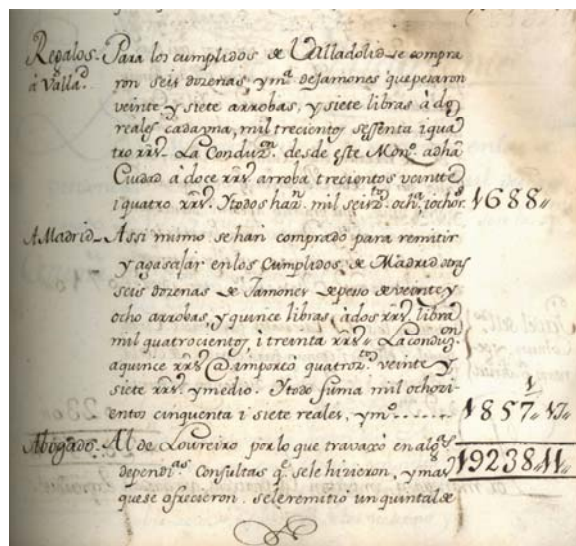 Regalos. Para los cumplidos de Valladolid se compra
à Vallad. ron seis dozenas, y m.ª de Jamones que pesaron
veinte y siete arrobas, y siete libras à dos
reales cada una, mil trecientos sesenta i qua
tro rr.v. La Conduz.n desde este Mon.º a dha
Ciudad a doce rr.v. arroba trecientos veinte
i quatro rr.v. Y todos haz.n mil seiz.tos och.ta i ochos. 1688„
A Madrid. Assi mimo se han comprado para remitir
y agasajar en los Cumplidos, de Madrid otras
seis dozenas de Jamones de peso de veinte y
ocho arrobas, y quince libras, à dos rr.v. libra
mil quatrocientos, i treinta rr.v. La conduz.on
a quince rr.v. @ importò quatroz.tos veinte y
siete rr.v. y medio. Y todo suma mil ochozi-
entos cinquenta i siete reales, y m.º ...... 1857„ 17„
Abogado. Al de Loureiro por lo que travaxò en alg.s 19238„ 11„
dependi.as Consultas q.e se le hizieron, y mas
que se ofrecieron. se le remitiò un quintal de